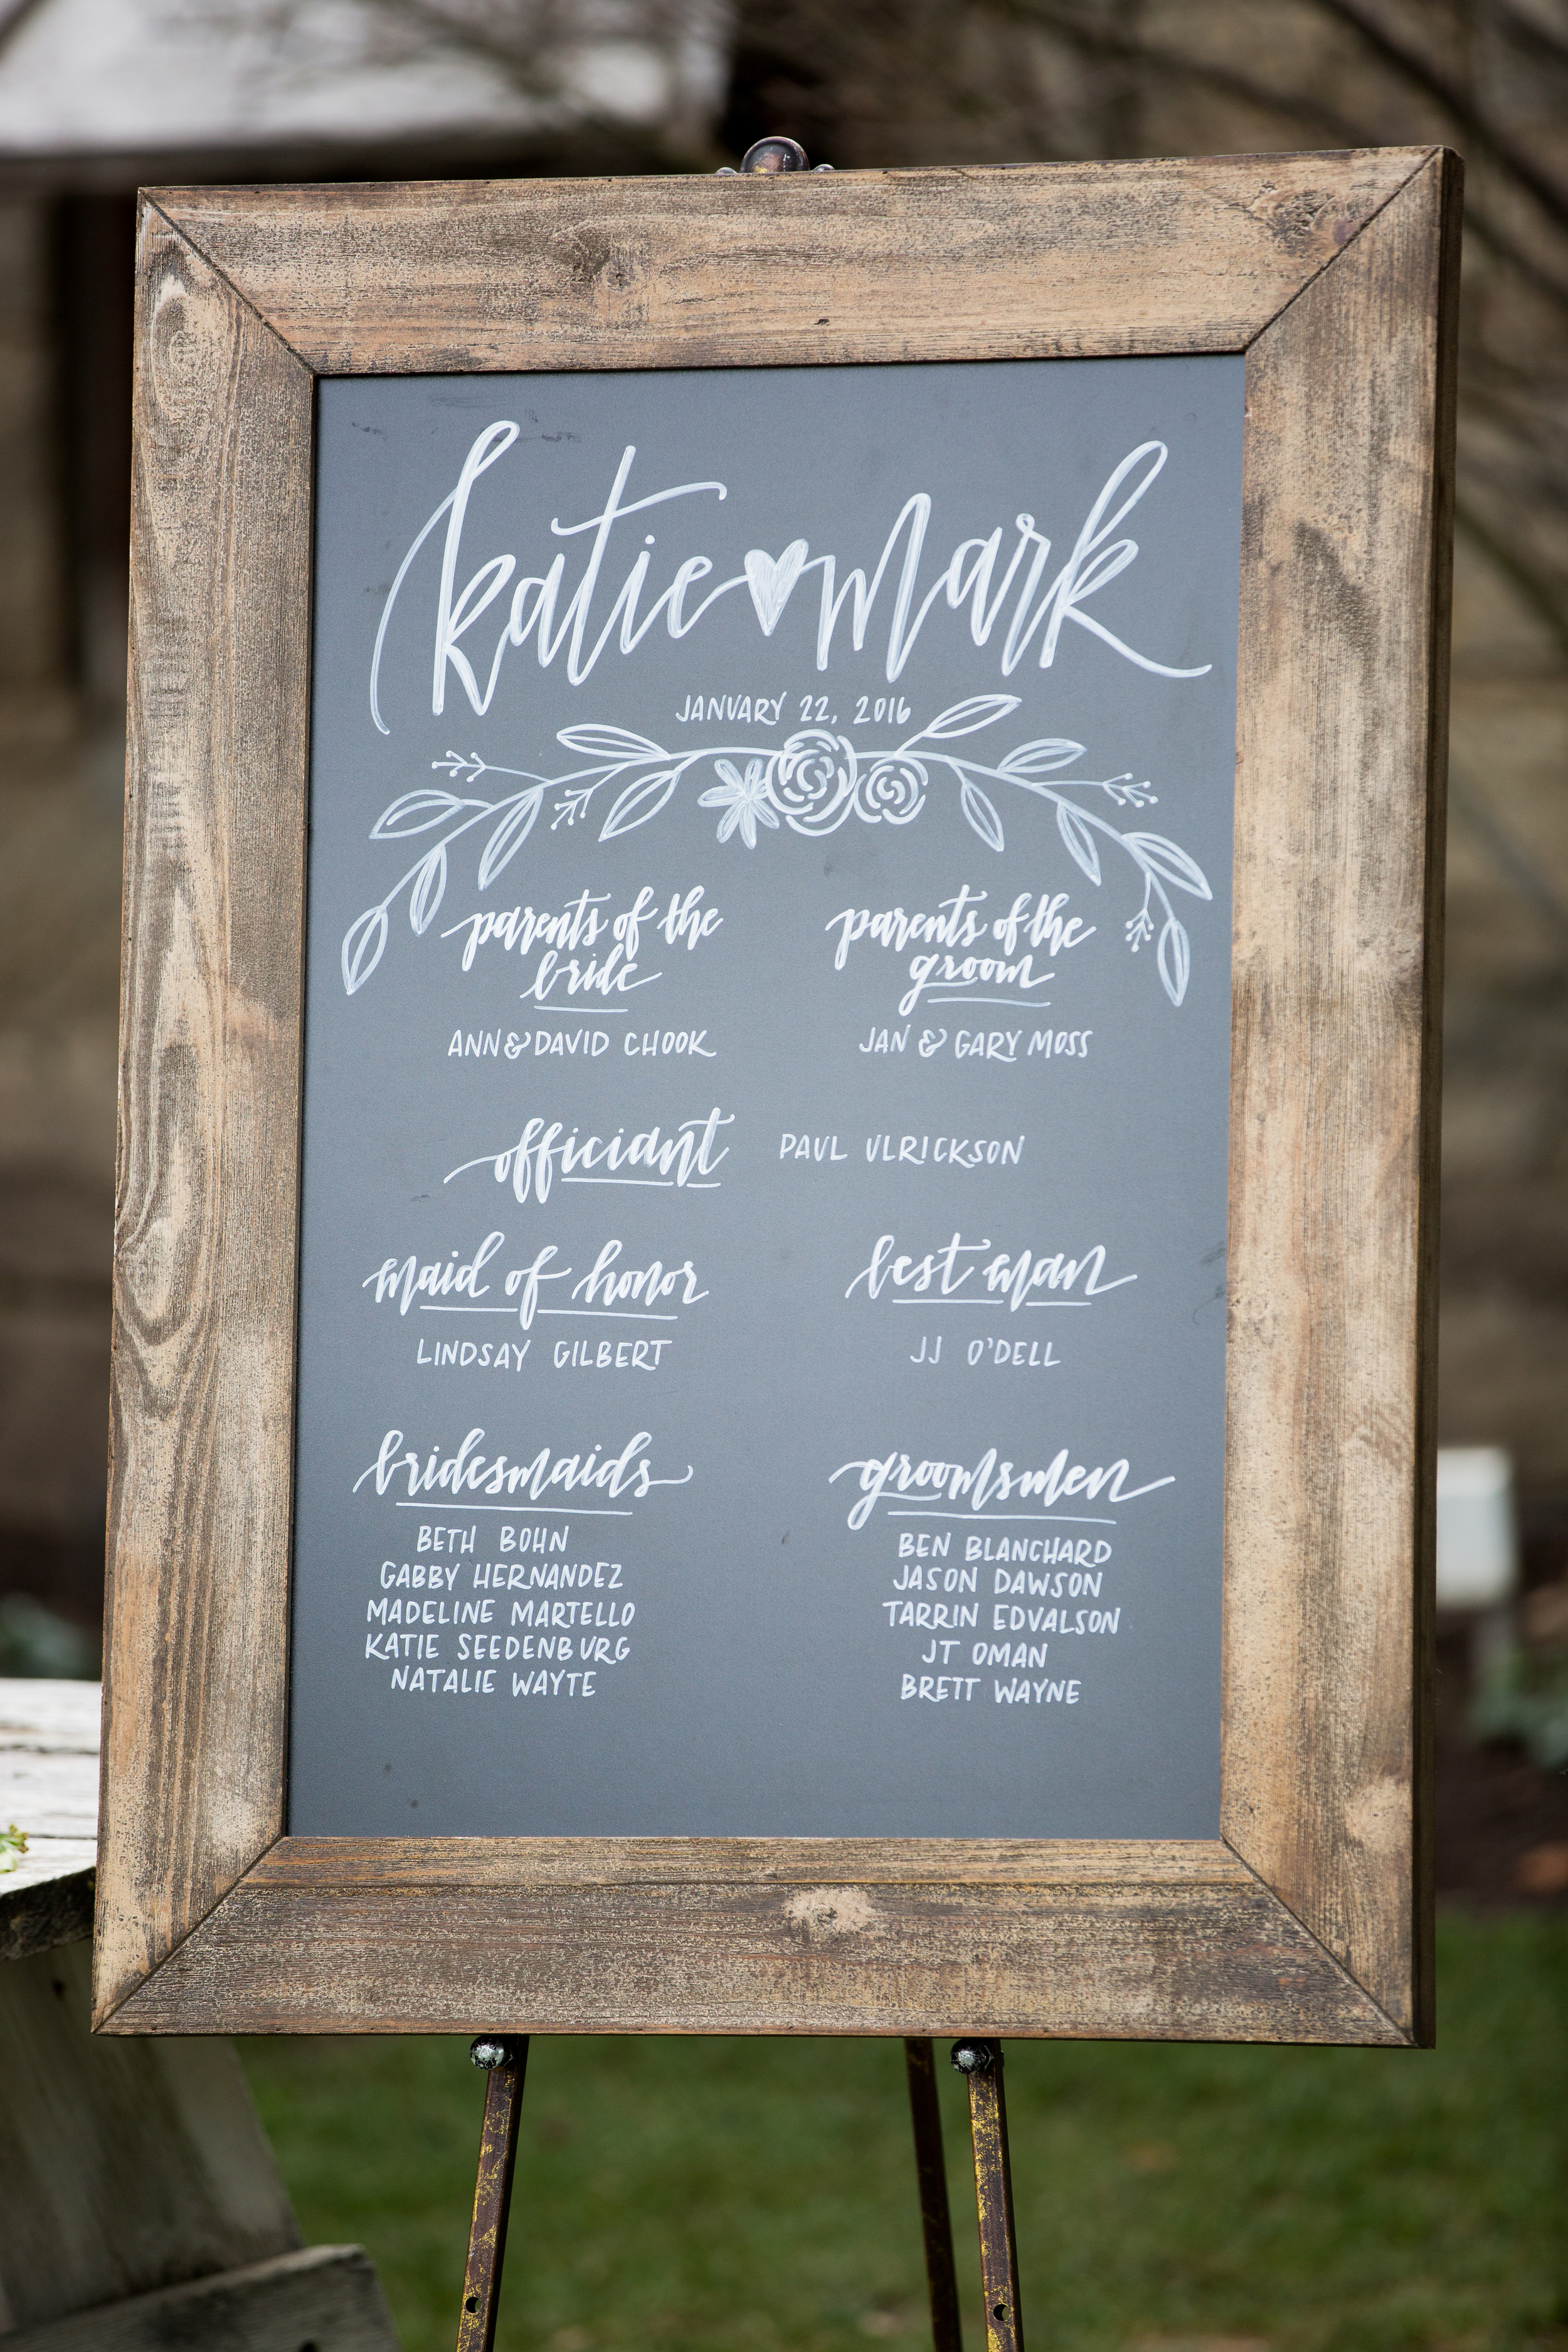 katie ♥ mark
JANUARY 22, 2016
parents of the
bride
ANN & DAVID CHOOK
parents of the
groom
JAN & GARY MOSS
officiant PAUL ULRICKSON
maid of honor
LINDSAY GILBERT
best man
JJ O'DELL
bridesmaids
BETH BOHN
GABBY HERNANDEZ
MADELINE MARTELLO
KATIE SEEDENBURG
NATALIE WAYTE
groomsmen
BEN BLANCHARD
JASON DAWSON
TARRIN EDVALSON
JT OMAN
BRETT WAYNE